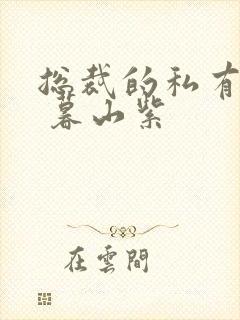 总裁的私有
暮山紫
在雲間